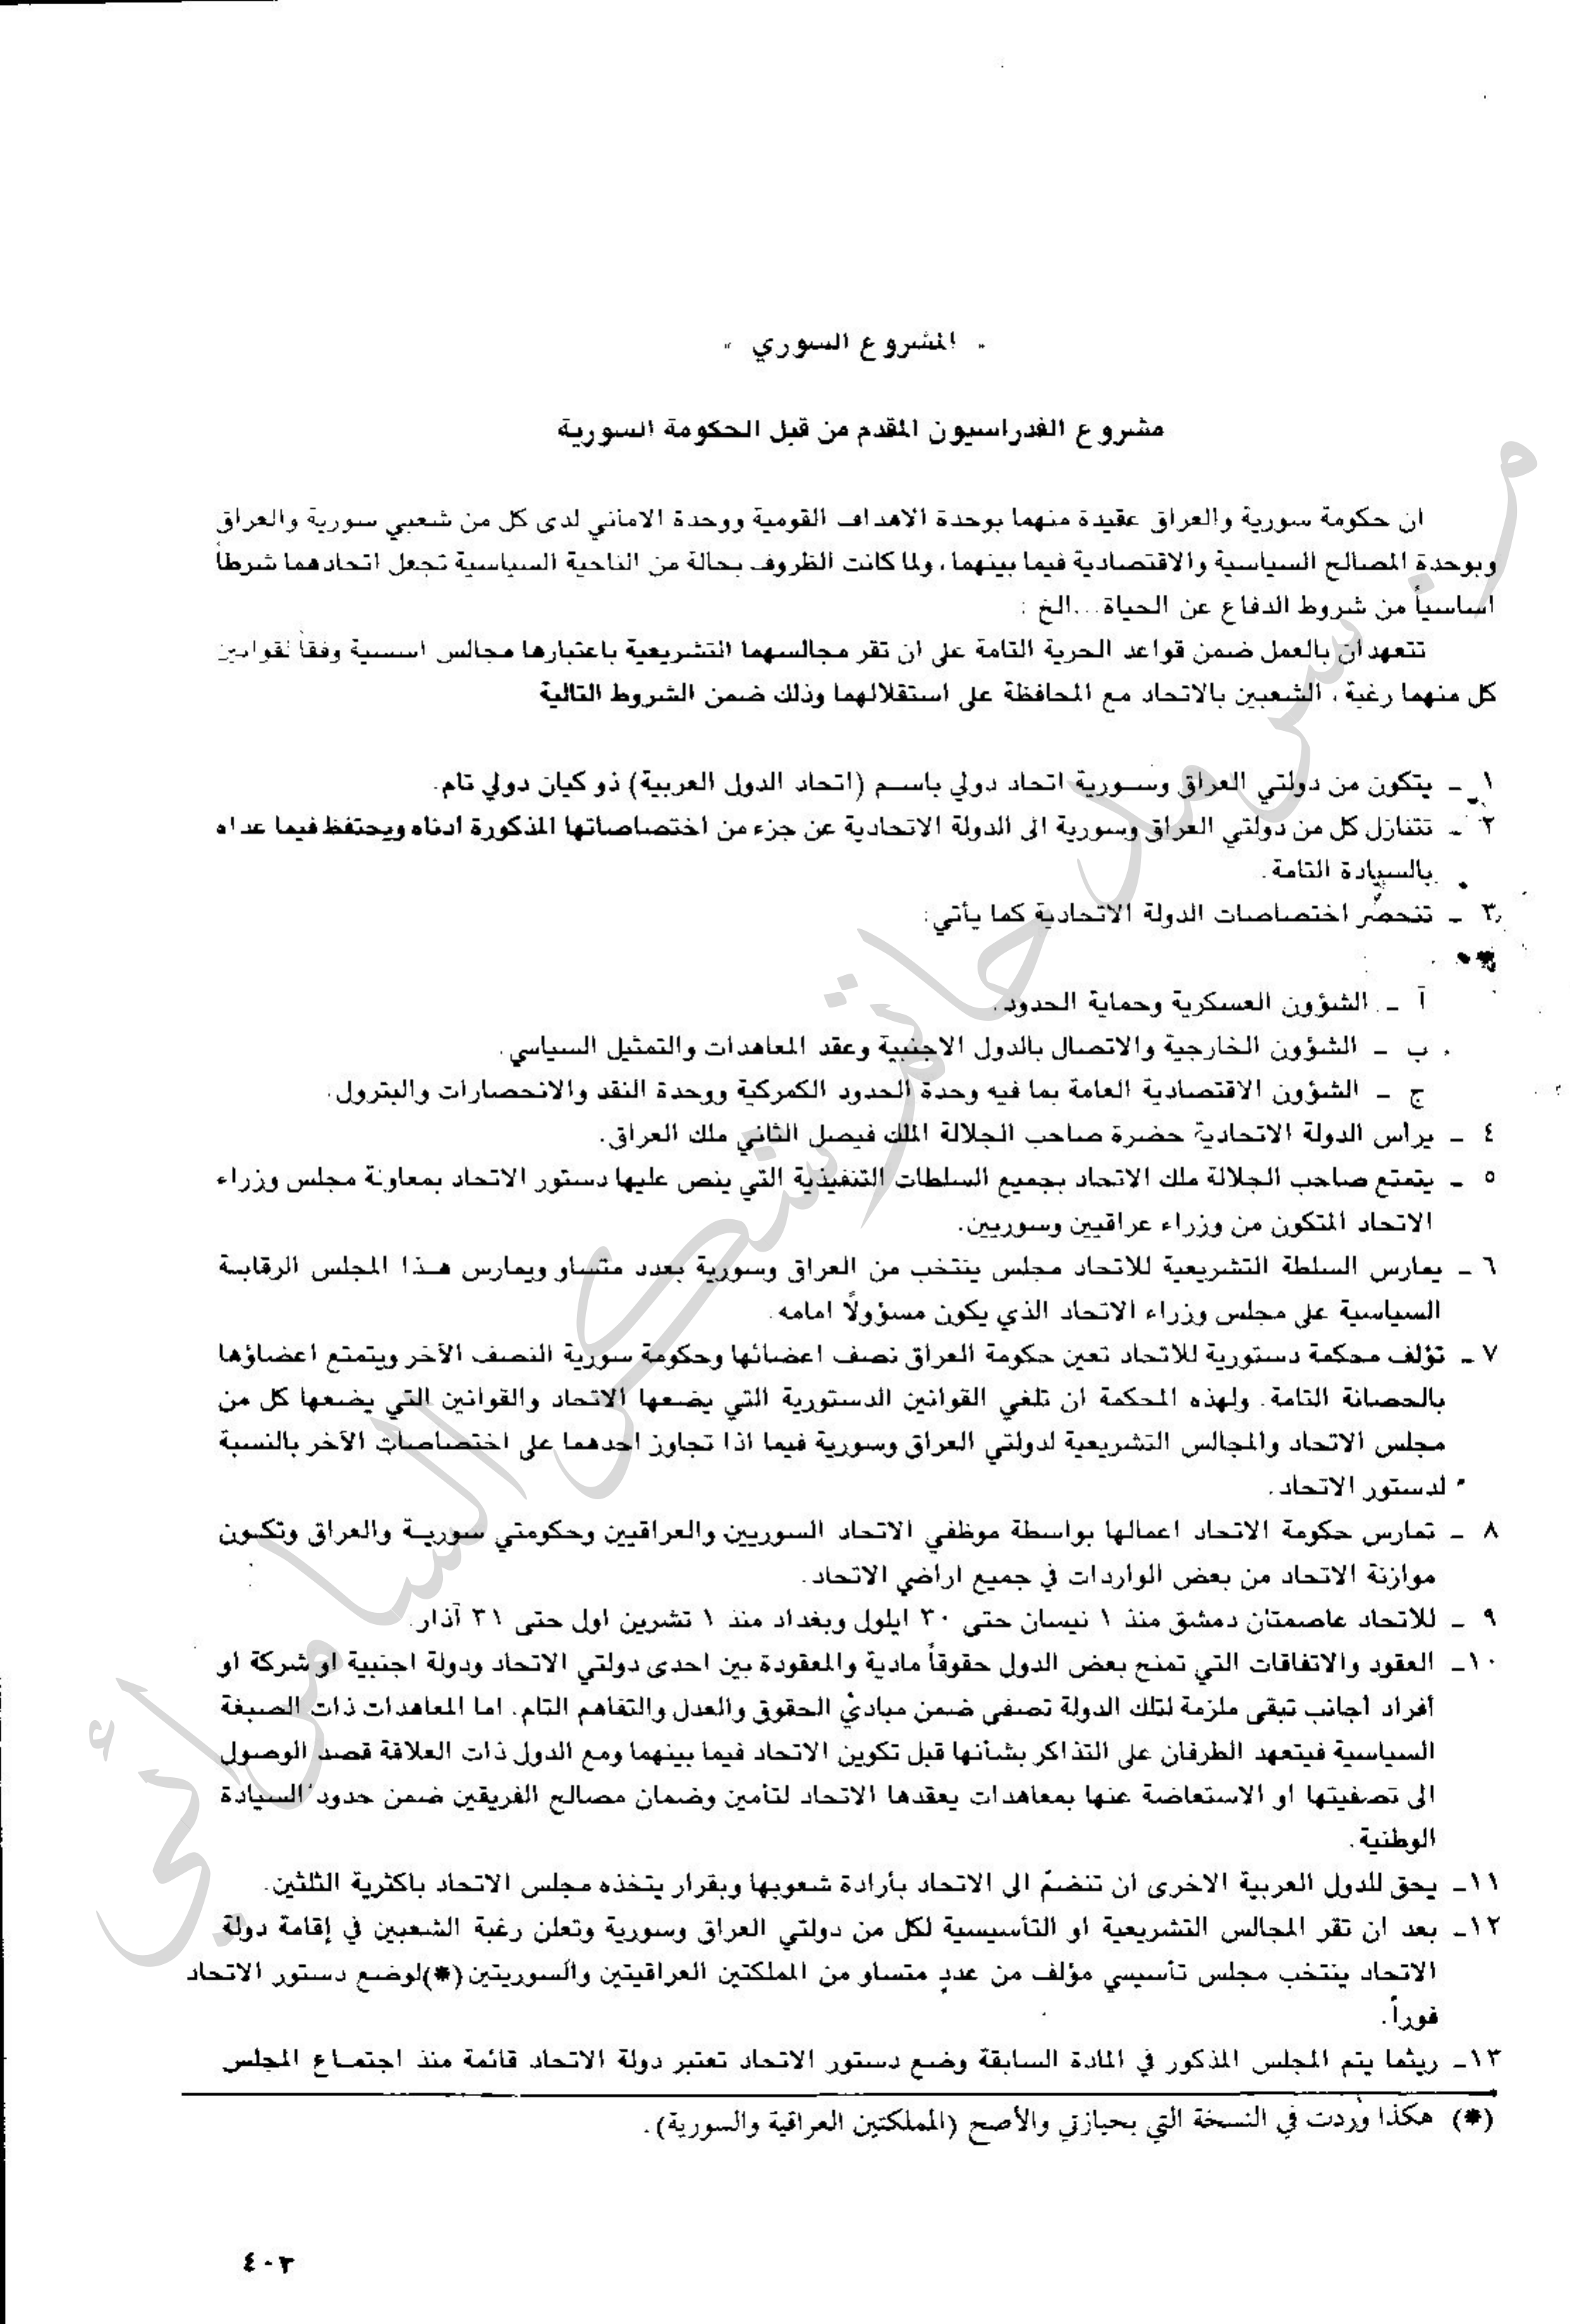 « المشروع السوري »
مشروع الفدراسيون المقدم من قبل الحكومة السورية
ان حكومة سورية والعراق عقيدة منهما بوحدة الاهداف القومية ووحدة الاماني لدى كل من شعبي سورية والعراق
وبوحدة المصالح السياسية والاقتصادية فيما بينهما، ولما كانت الظروف بحالة من الناحية السياسية تجعل اتحادهما شرطاً
اساسياً من شروط الدفاع عن الحياة...الخ :
تتعهد ان بالعمل ضمن قواعد الحرية التامة على ان تقر مجالسهما التشريعية باعتبارها مجالس اسسية وفقاً لقوانين
كل منهما رغبة، الشعبين بالاتحاد مع المحافظة على استقلالهما وذلك ضمن الشروط التالية
١ - يتكون من دولتي العراق وسورية اتحاد دولي باسم (اتحاد الدول العربية) ذو كيان دولي تام.
٢ - تتنازل كل من دولتي العراق وسورية الى الدولة الاتحادية عن جزء من اختصاصاتها المذكورة ادناه ويحتفظ فيما عداه
بالسيادة التامة.
٣ - تنحصر اختصاصات الدولة الاتحادية كما يأتي:
آ - الشؤون العسكرية وحماية الحدود.
ب - الشؤون الخارجية والاتصال بالدول الاجنبية وعقد المعاهدات والتمثيل السياسي.
ج - الشؤون الاقتصادية العامة بما فيه وحدة الحدود الكمركية ووحدة النقد والانحصارات والبترول.
٤ - يرأس الدولة الاتحادية حضرة صاحب الجلالة الملك فيصل الثاني ملك العراق.
٥ - يتمتع صاحب الجلالة ملك الاتحاد بجميع السلطات التنفيذية التي ينص عليها دستور الاتحاد بمعاونة مجلس وزراء
الاتحاد المتكون من وزراء عراقيين وسوريين.
٦ - يمارس السلطة التشريعية للاتحاد مجلس ينتخب من العراق وسورية بعدد متساو ويمارس هذا المجلس الرقابة
السياسية على مجلس وزراء الاتحاد الذي يكون مسؤولًا امامه.
٧ - تؤلف محكمة دستورية للاتحاد تعين حكومة العراق نصف اعضائها وحكومة سورية النصف الآخر ويتمتع اعضاؤها
بالحصانة التامة. ولهذه المحكمة ان تلغي القوانين الدستورية التي يضعها الاتحاد والقوانين التي يضعها كل من
مجلس الاتحاد والمجالس التشريعية لدولتي العراق وسورية فيما اذا تجاوز احدهما على اختصاصات الآخر بالنسبة
لدستور الاتحاد.
٨ - تمارس حكومة الاتحاد اعمالها بواسطة موظفي الاتحاد السوريين والعراقيين وحكومتي سورية والعراق وتكون
موازنة الاتحاد من بعض الواردات في جميع اراضي الاتحاد.
٩ - للاتحاد عاصمتان دمشق منذ ١ نيسان حتى ٣٠ ايلول وبغداد منذ ١ تشرين اول حتى ٣١ آذار.
١٠- العقود والاتفاقات التي تمنح بعض الدول حقوقاً مادية والمعقودة بين احدى دولتي الاتحاد ودولة اجنبية او شركة او
أفراد أجانب تبقى ملزمة لتلك الدولة تصفى ضمن مبادئ الحقوق والعدل والتفاهم التام. اما المعاهدات ذات الصبغة
السياسية فيتعهد الطرفان على التذاكر بشأنها قبل تكوين الاتحاد فيما بينهما ومع الدول ذات العلاقة قصد الوصول
الى تصفيتها او الاستعاضة عنها بمعاهدات يعقدها الاتحاد لتأمين وضمان مصالح الفريقين ضمن حدود السيادة
الوطنية.
١١- يحق للدول العربية الاخرى ان تنضمّ الى الاتحاد بأرادة شعوبها وبقرار يتخذه مجلس الاتحاد باكثرية الثلثين.
١٢- بعد ان تقر المجالس التشريعية او التأسيسية لكل من دولتي العراق وسورية وتعلن رغبة الشعبين في إقامة دولة
الاتحاد ينتخب مجلس تأسيسي مؤلف من عددٍ متساو من المملكتين العراقيتين والسوريتين (*)لوضع دستور الاتحاد
فوراً.
١٣- ريثما يتم المجلس المذكور في المادة السابقة وضع دستور الاتحاد تعتبر دولة الاتحاد قائمة منذ اجتماع المجلس
(*) هكذا وردت في النسخة التي بحيازتي والأصح (المملكتين العراقية والسورية).
٤٠٣